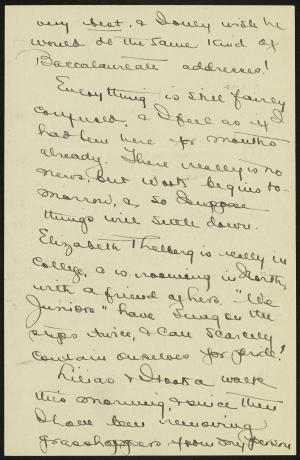 very best, & I only wish he
would do the same kind of
Baccalaureate addresses!
Everything is still fairly
confused, & I feel as if I
had been here for months
already. There really is no
news, but work begins to-
morrow, & so I suppose
things will settle down.
Elizabeth Thelberg is really in
College, & is rooming in North,
with a friend of hers. "We
Juniors" have sung on the
steps twice, & can scarcely
contain ourselves for pride!
Lilias & I took a walk
this morning, & since then
I have been removing
grasshoppers from my person